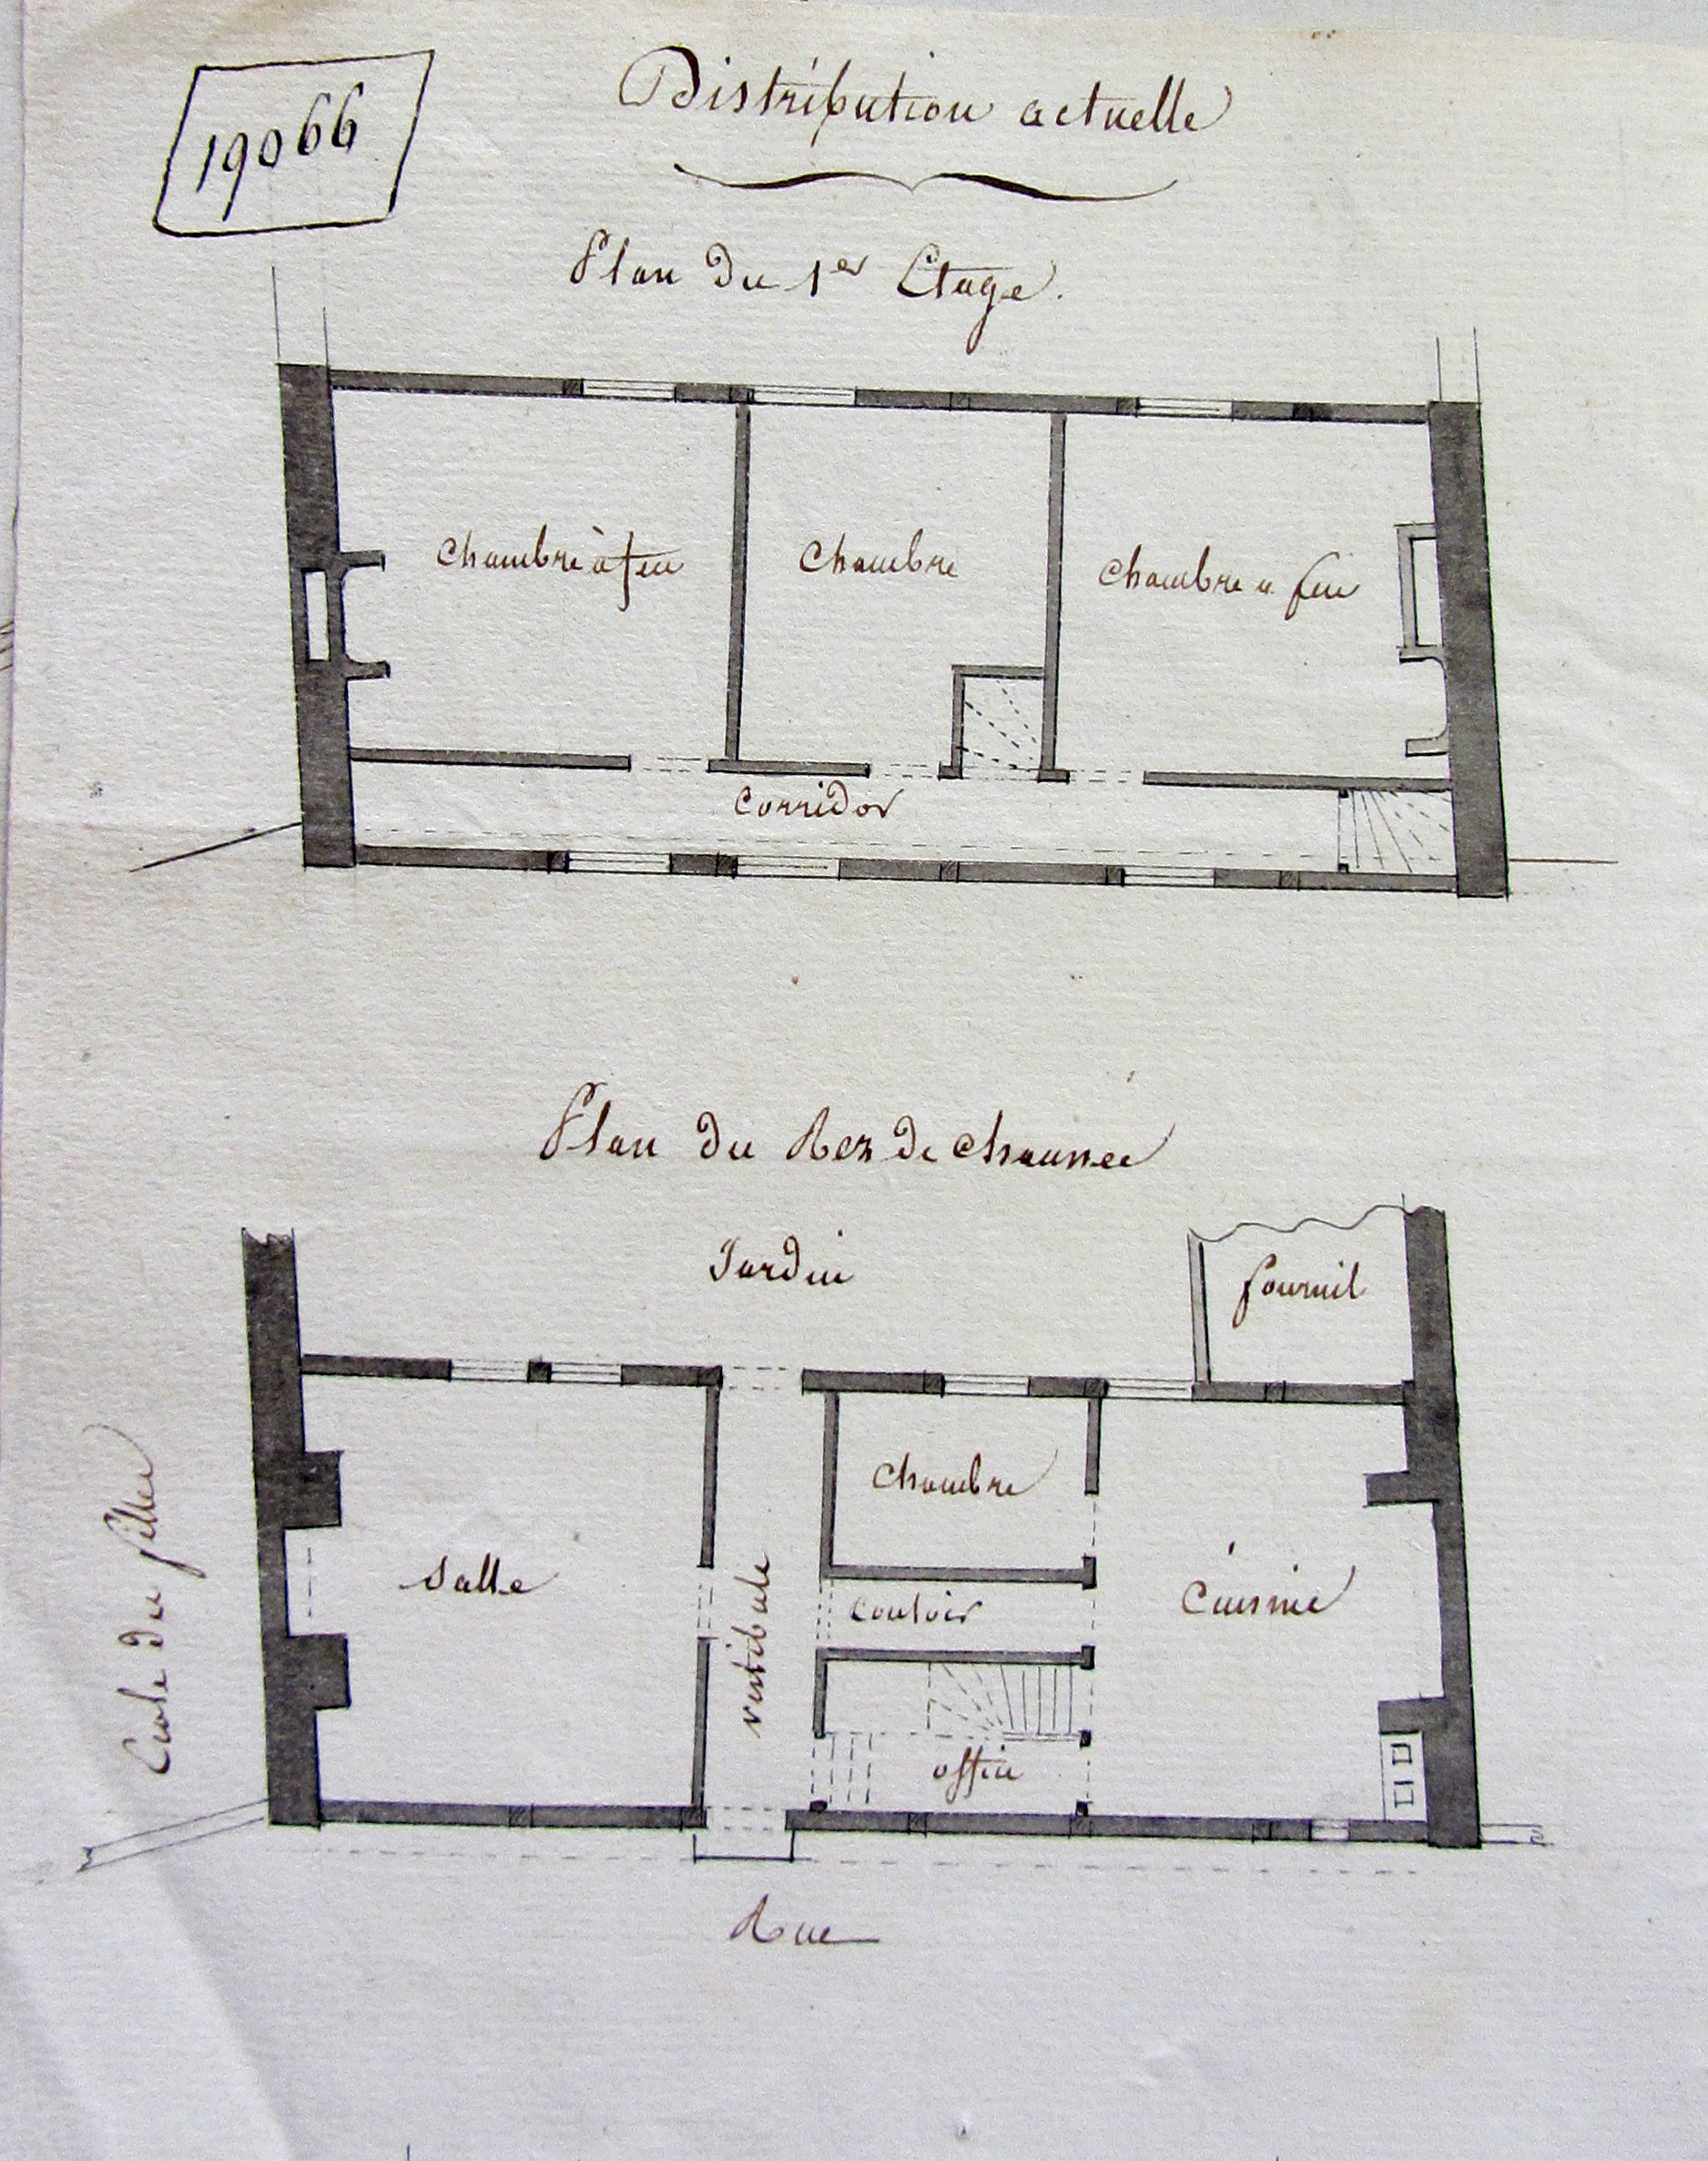 19066
Distribution actuelle
Plan du 1er Etage.
Chambre à feu
Chambre
Chambre a feu
Corridor
Plan du Rez de chaussée
Jardin
fournil
Chambre
Salle
vestibule
Couloir
Cuisine
office
Ecole de filles
Rue